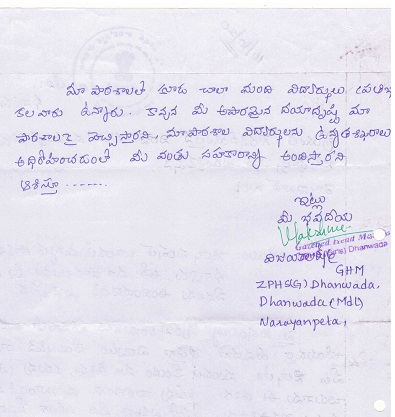 మా పాఠశాలలో కూడా చాలా మంది విద్యార్థులు ప్రతిభ
కలవారు ఉన్నారు. కావున మీ అపారమైన దయాదృష్టి మా
పాఠశాలపై వెచ్చిస్తారని, మా పాఠశాల విద్యార్థులను ఉన్నత శిఖరాలు
అధిరోహించడంలో మీ వంతు సహకారాన్ని అందిస్తారని
ఆశిస్తూ .......
ఇట్లు
మీ భవదీయ
Gazetted Head Mis
Dhanwada
విజయలక్ష్మి
GHM
ZPHS(G) Dhanwada,
Dhanwada (Mdl)
Narayanpeta,